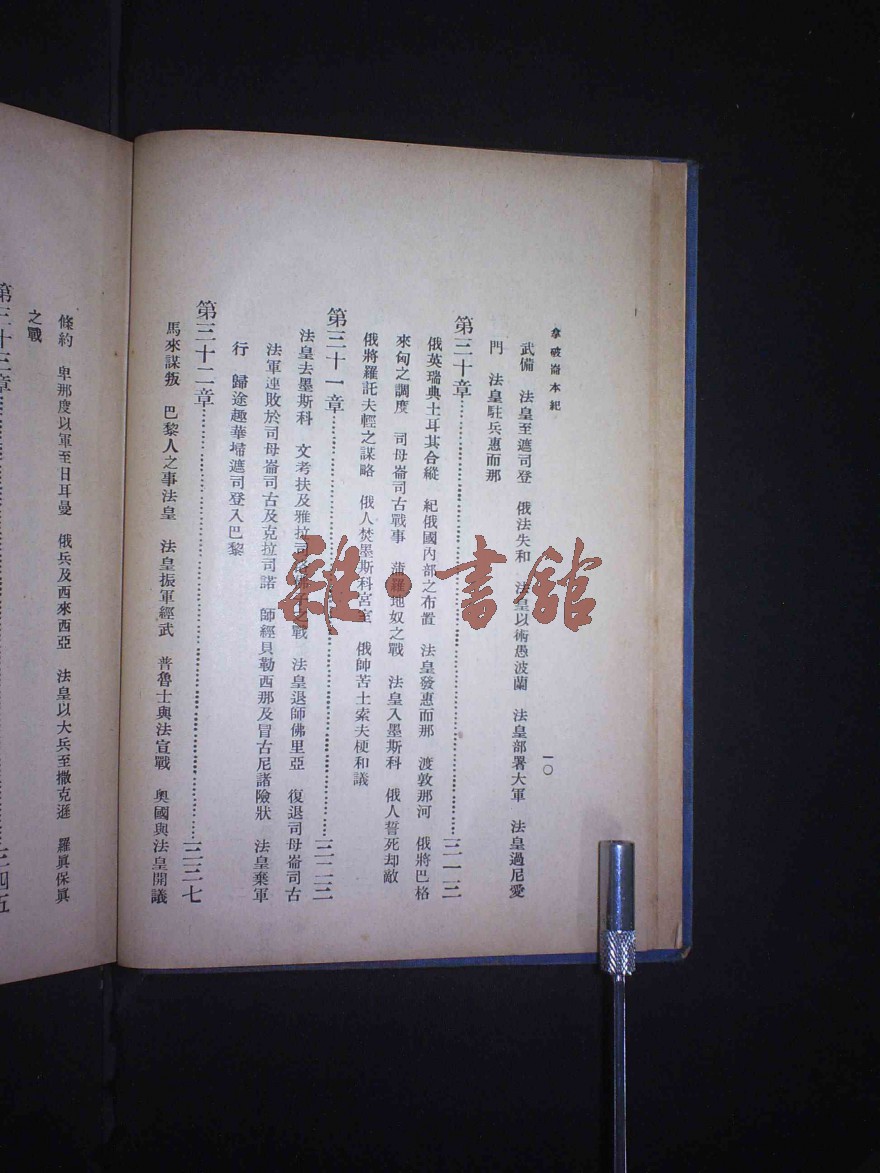 拿破崙本紀
一〇
武備 法皇至遮司登 俄法失和 法皇以術愚波蘭 法皇部署大軍 法皇過尼愛
門 法皇駐兵惠而那
第三十章……三一三
俄英瑞典土耳其合縱 紀俄國內部之布置 法皇發惠而那 渡敦那河 俄將巴格
來甸之調度 司母崙司古戰事 蒲羅地奴之戰 法皇入墨斯科 俄人誓死却敵
俄將羅託夫輕之謀略 俄人焚墨斯科宮室 俄帥苦土索夫梗和議
第三十一章……三二三
法皇去墨斯科 文考扶及雅拉司 之戰 法皇退師佛里亞 復退司母崙司古
法軍連敗於司母崙司古及克拉司諾 師經貝勒西那及冒古尼諸險狀 法皇棄軍
行 歸途趣華埽遮司登入巴黎
第三十二章……三三七
馬來謀叛 巴黎人之事法皇 法皇振軍經武 普魯士與法宣戰 奧國與法皇開議
條約 卑那度以軍至日耳曼 俄兵及西來西亞 法皇以大兵至撒克遜 羅眞保眞
之戰
第三十三章……三四五
雜·書館